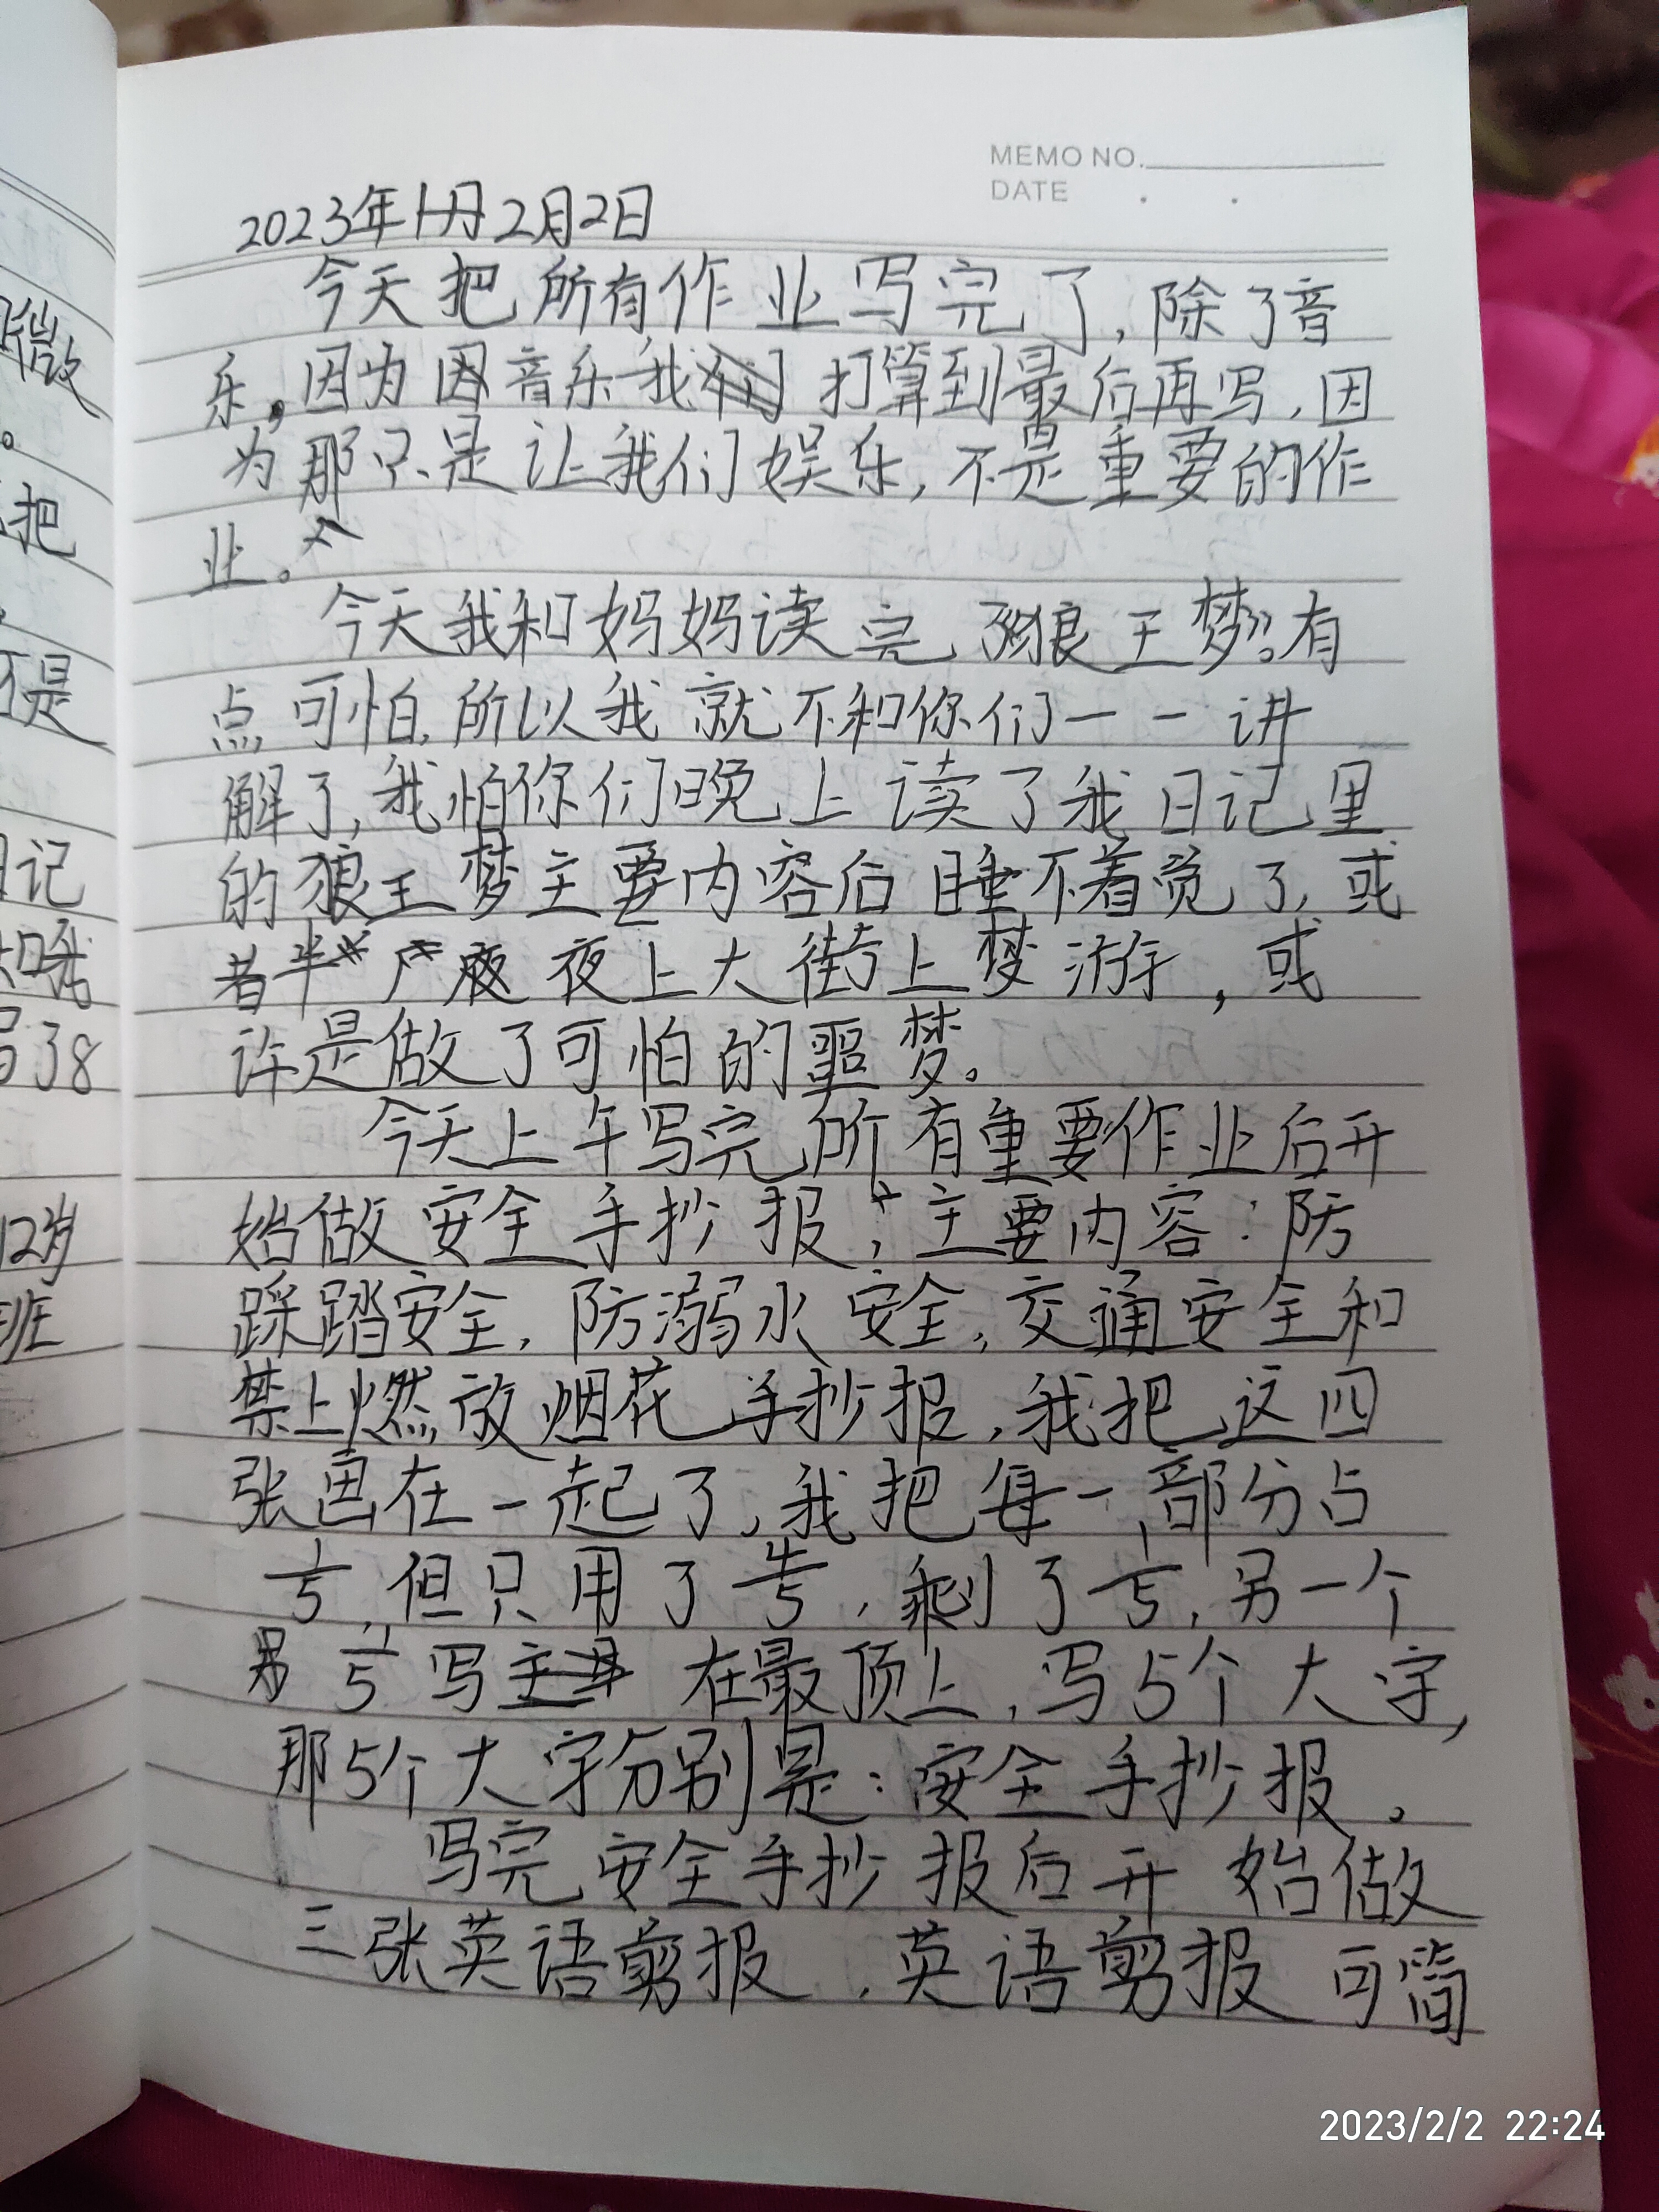 MEMO NO.
DATE . .
2023年1月2月2日
今天把所有作业写完了,除了音
乐,因为因音乐我们打算到最后再写,因
为那只是让我们娱乐,不是重要的作
业。
今天我和妈妈读完了狼王梦》。有
点可怕,所以我就不和你们一一讲
解了,我怕你们晚上读了我日记里
的狼王梦主要内容后睡不着觉了,或
者半夜夜上大街上梦游,或
许是做了可怕的噩梦。
今天上午写完所有重要作业后开
始做安全手抄报,主要内容:防
踩踏安全,防溺水安全,交通安全和
禁止燃放烟花手抄报,我把这四
张画在一起了,我把每一部分占
1/5,但只用了4/5,剩了1/5,另一个
另1/5写在最顶上,写5个大字,
那5个大字分别是:安全手抄报。
写完安全手抄报后开始做
三张英语剪报,英语剪报可简
微
。
把
不是
日记
和我
写了8
12岁
班
2023/2/2 22:24